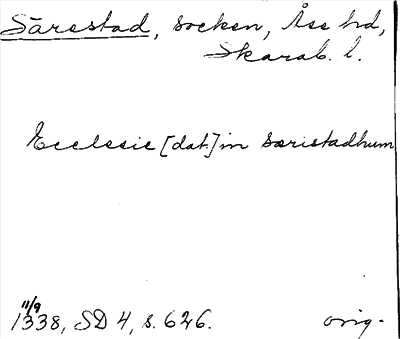 Särestad, socken, Åse hd,
Skarab. l.
Ecclesie [dat.] in Særistadhum
11/9
1338, SD 4, s. 626.
orig.